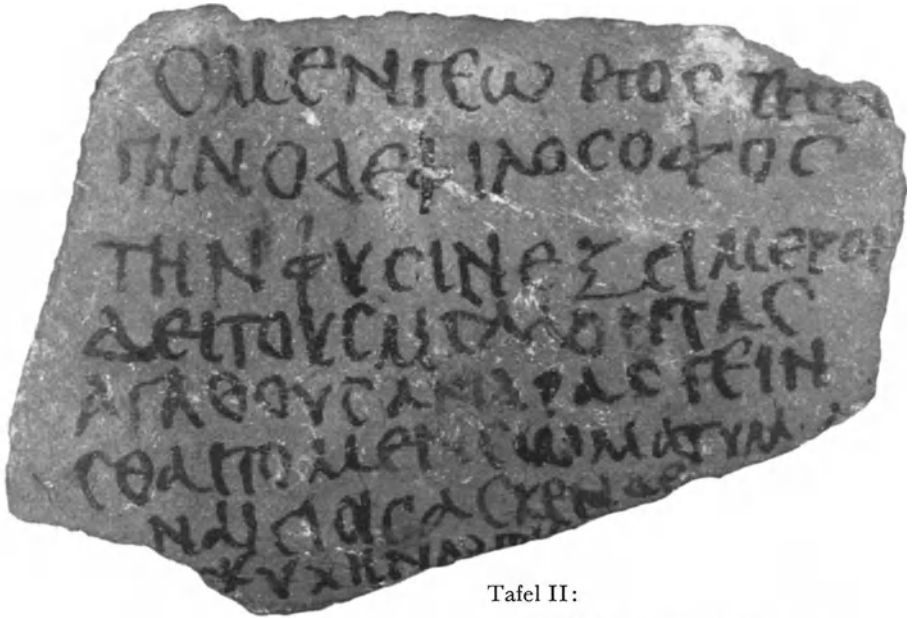 ΟΜΕΝΓΕΩ ΡΓΟϹ
ΓΗΝΟΔΕΦΙΛΟϹΟΦΟϹ
ΤΗΝΦΥϹΙΝΕΞϹΙΜΕΡΟΙ
ΔΕΙΤΟΥϹΜΕΛΛΟΝΤΑϹ
ΑΓΑΘΟΥϹΑΝΔΡΑϹΓΕΙΝ
ϹΘΑΙΤΟΜΕΝϹΩΜΑΓΥΜ
ΨΥΧΗΝ
Tafel II: